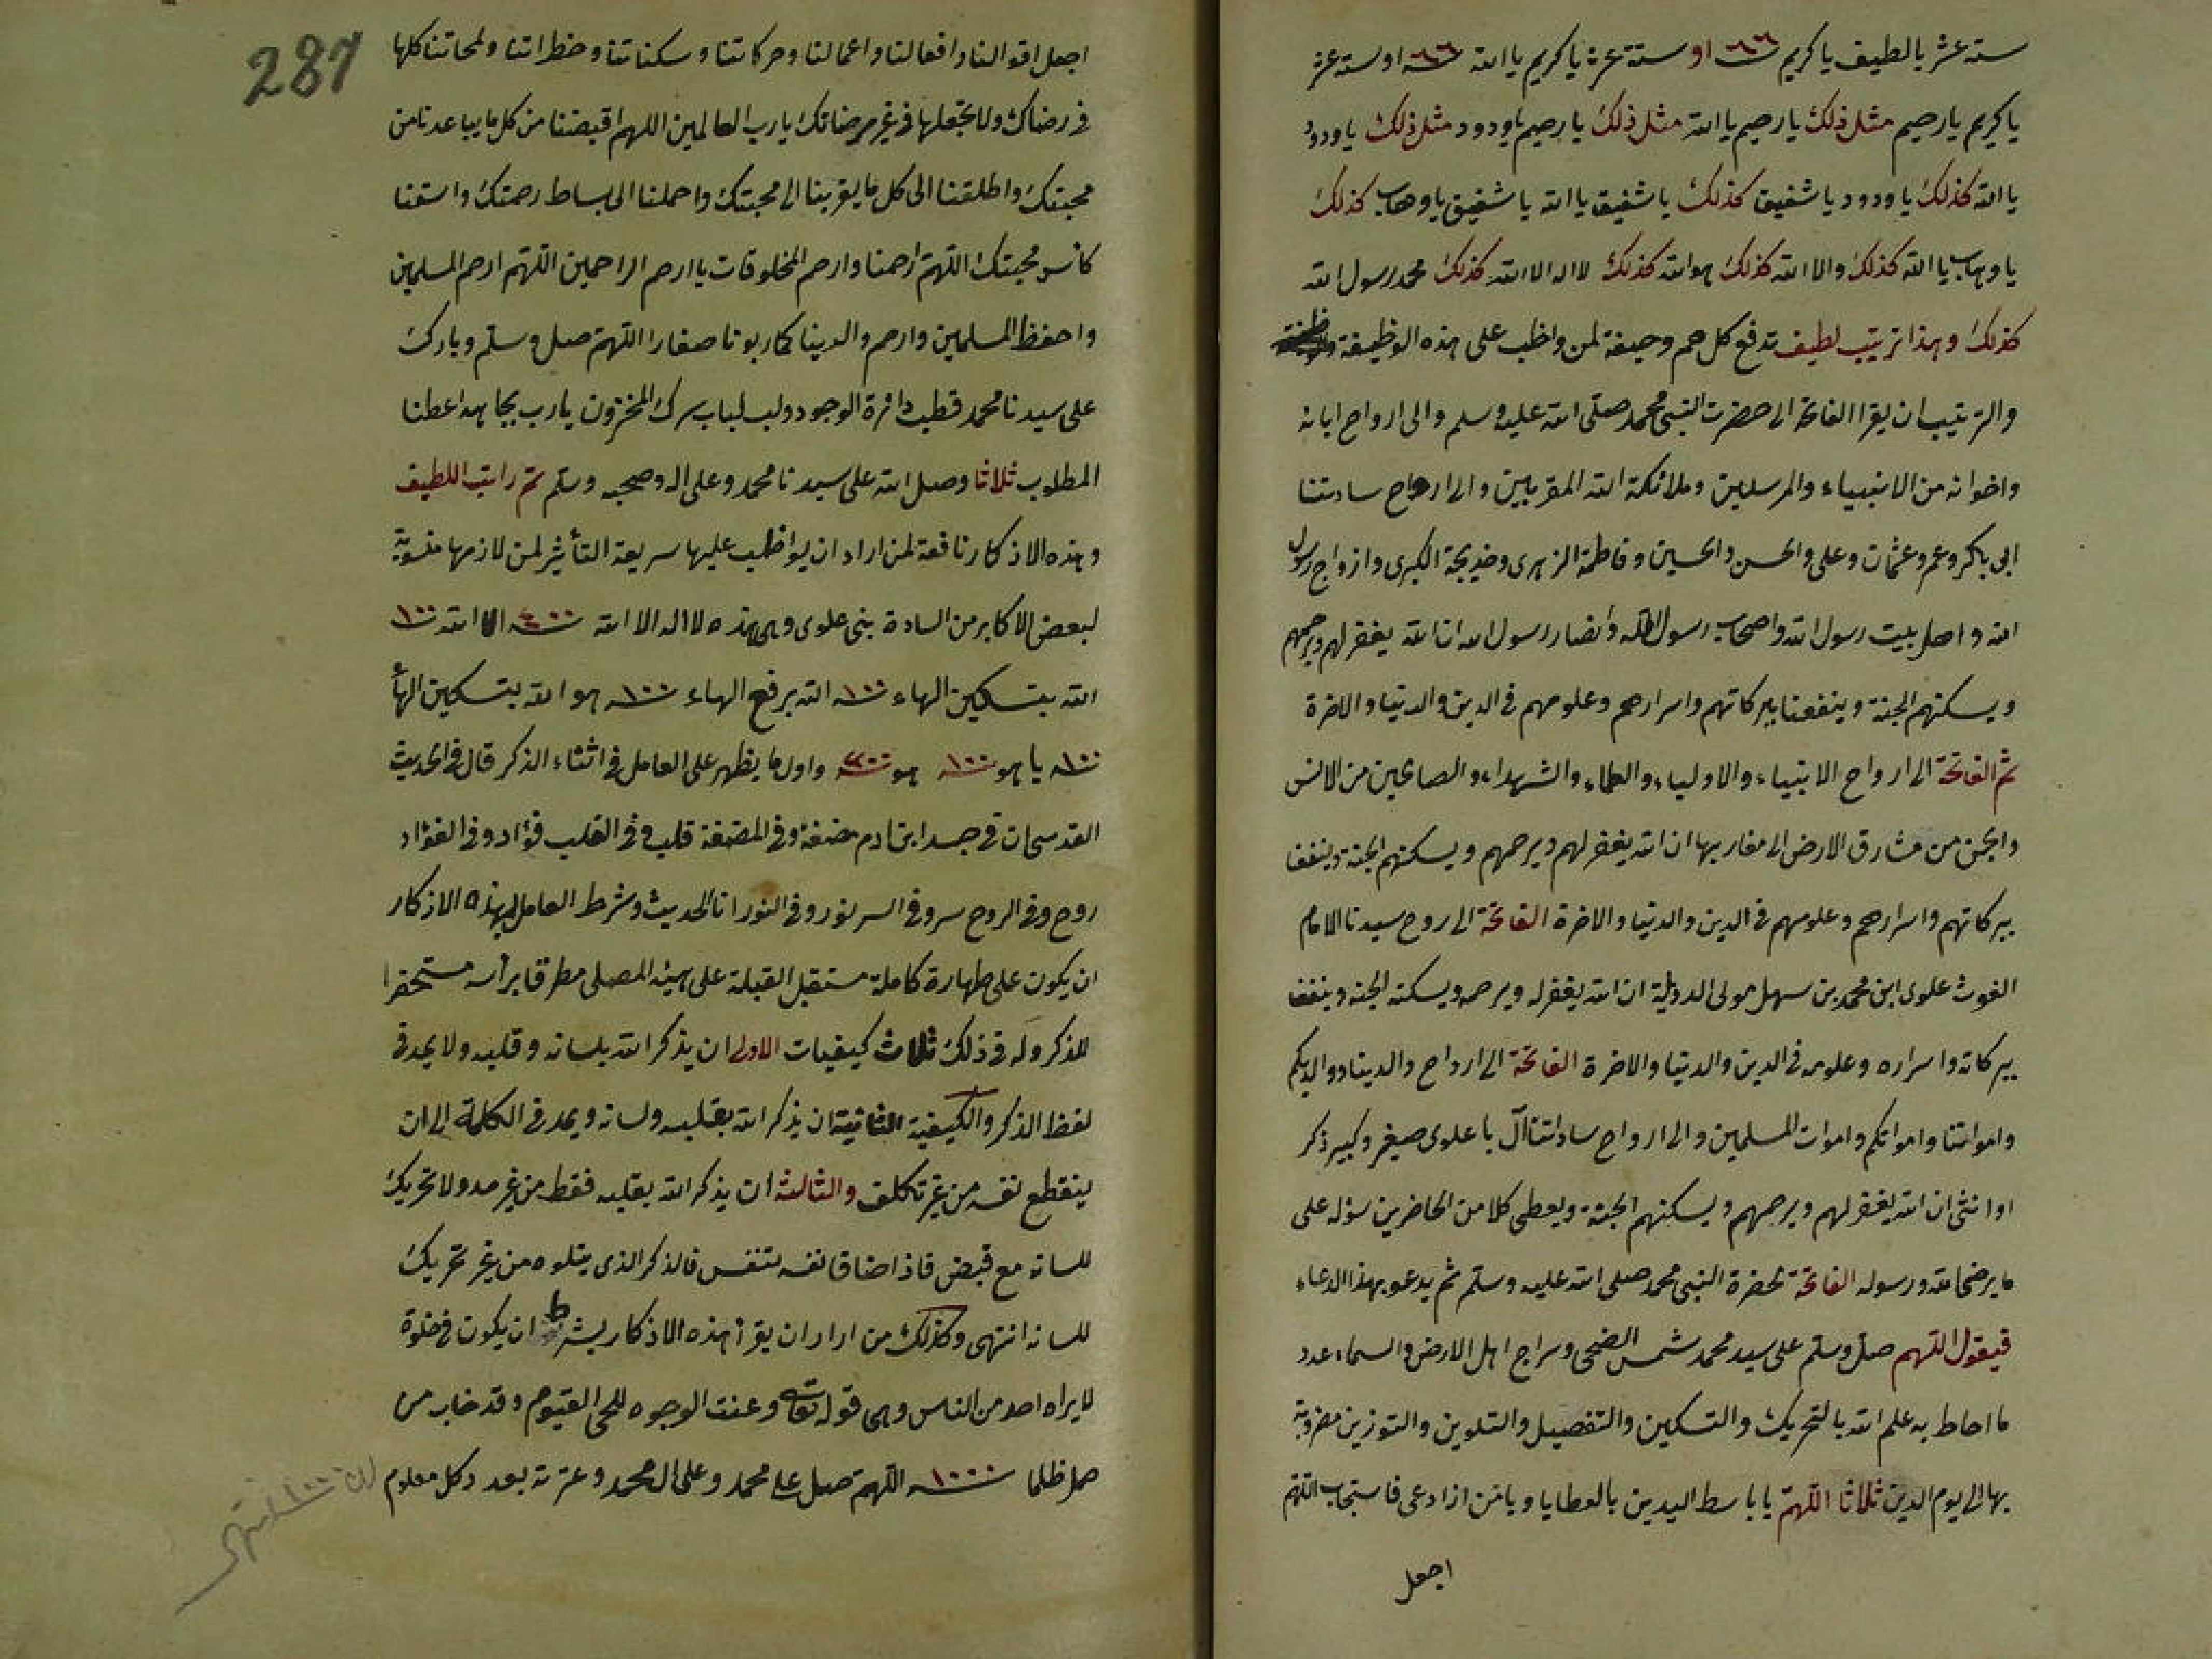 ستة عشر يا لطيف يا كريم ٨٦ او ستة عشر يا كريم يا الله ٨٦ او ستة عشر
يا كريم يا رحيم مثل ذلك يا رحيم يا الله مثل ذلك يا رحيم يا ودود مثل ذلك يا ودود
يا الله كذلك يا ودود يا شفيق كذلك يا شفيق يا الله يا شفيق يا وهاب كذلك
يا وهاب يا الله كذلك والا الله كذلك هو الله كذلك لا اله الا الله كذلك محمد رسول الله
كذلك وهذا ترتيب لطيف تدفع كل هم وحيفة لمن واظب على هذه الوظيفة
والترتيب ان يقرا الفاتحة الى حضرت النبي محمد صلى الله عليه وسلم والى ارواح ابائه
واخوانه من الانبياء والمرسلين وملائكة الله المقربين والى ارواح ساداتنا
ابى بكر وعمر وعثمان وعلى والحسن والحسين وفاطمة الزهرى وخديجة الكبرى وازواج رسول
الله واهل بيت رسول الله واصحاب رسول الله وأنصار رسول الله ان الله يغفر لهم ويرحمهم
ويسكنهم الجنة وينفعنا ببركاتهم واسرارهم وعلومهم في الدين والدينا والاخرة
ثم الفاتحة الى ارواح الانبياء والاولياء والعلماء والشهداء والصالحين من الانس
والجن من مشارق الارض الى مغاربها ان الله يغفر لهم ويرحمهم ويسكنهم الجنة وينفعنا
ببركاتهم واسرارهم وعلومهم في الدين والدنيا والاخرة الفاتحة الى روح سيدنا الامام
الغوث علوى ابن محمد بن سهل مولى الدويلة ان الله يغفر له ويرحمه ويسكنه الجنة وينفعنا
ببركاته واسراره وعلومه في الدين والدنيا والاخرة الفاتحة الى ارواح والدينا ووالديكم
وامواتنا وامواتكم واموات المسلمين والى ارواح ساداتنا آل با علوى صغير وكبير ذكر
او انثى ان الله يغفر لهم ويرحمهم ويسكنهم الجنة ويعطى كلا من الحاضرين سؤله على
ما يرضى الله ورسوله الفاتحة لحضرة النبي محمد صلى الله عليه وسلم ثم يدعو بهذا الدعاء
فيقول اللهم صل وسلم على سيد محمد شمس الضحى وسراج اهل الارض والسماء عدد
ما احاط به علم الله بالتحريك والتسكين والتفصيل والتلوين والتوزين مضروبة
بها الى يوم الدين ثلاثا اللهم يا باسط اليدين بالعطايا ويا من اذا دعى فاستجاب اللهم
اجعل
287
اجعل اقوالنا وافعالنا واعمالنا وحركاتنا وسكناتنا وخطراتنا ولمحاتنا كلها
في رضاك ولا تجعلها في غير مرضاتك يا رب العالمين اللهم اقبضنا من كل ما يباعدنا من
محبتك واطلقنا الى كل ما يقربنا الى محبتك واحملنا الى بساط رحمتك واسقنا
كاس محبتك اللهم ارحمنا وارحم المخلوقات يا ارحم الراحمين اللهم ارحم المسلمين
واحفظ المسلمين وارحم والدينا كما ربونا صغارا اللهم صل وسلم وبارك
على سيدنا محمد قطب دائرة الوجود ولب لباب سرك المخزون يا رب بجاهه اعطنا
المطلوب ثلاثا وصل الله على سيدنا محمد وعلى اله وصحبه وسلم تم راتب اللطيف
وهذه الاذكار نافعة لمن اراد ان يواظب عليها سريعة التأثير لمن لازمها منسوبة
لبعض الاكابر من السادة بنى علوى وهى هذه لا اله الا الله الا الله ١٠٠
الله بتسكين الهاء ١٠٠ الله برفع الهاء ١٠٠ هو الله بتسكين الهأ
١٠٠ يا هو ١٠٠ هو واول ما يظهر على العامل في اثناء الذكر قال في الحديث
القدسي ان في جسد ابن ادم مضغة وفي المضغة قلب وفي القلب فؤاد وفي الفؤاد
روح وفي الروح سر وفي السر نور وفي النور انا الحديث وشرط العامل بهذه الاذكار
ان يكون على طهارة كاملة مستقبل القبلة على هيئة المصلى مطرقا برأسه مستحضرا
للذكر وله في ذلك ثلاث كيفيات الاولى ان يذكر الله بلسانه وقلبه ولا يمد في
لفظ الذكر والكيفية الثانية ان يذكر الله بقلبه ولسانه ويمد في الكلمة الى ان
ينقطع نفسه من غير تكلف والثالثة ان يذكر الله بقلبه فقط من غير مد ولا تحريك
للسانه مع قبض فاذا ضاق نفسه تنفس فالذكر الذى يتلوه من غير تحريك
للسانه انتهى وكذلك من اراد ان يقرأ هذه الاذكار بشرط ان يكون في خلوة
لا يراه احد من الناس وهى قوله تعالى وعنت الوجوه للحى القيوم وقد خاب من
حمل ظلما ١٠٠٠ اللهم صل على محمد وعلى ال محمد وعترته بعدد كل معلوم
لك ١٠٠ انتهى